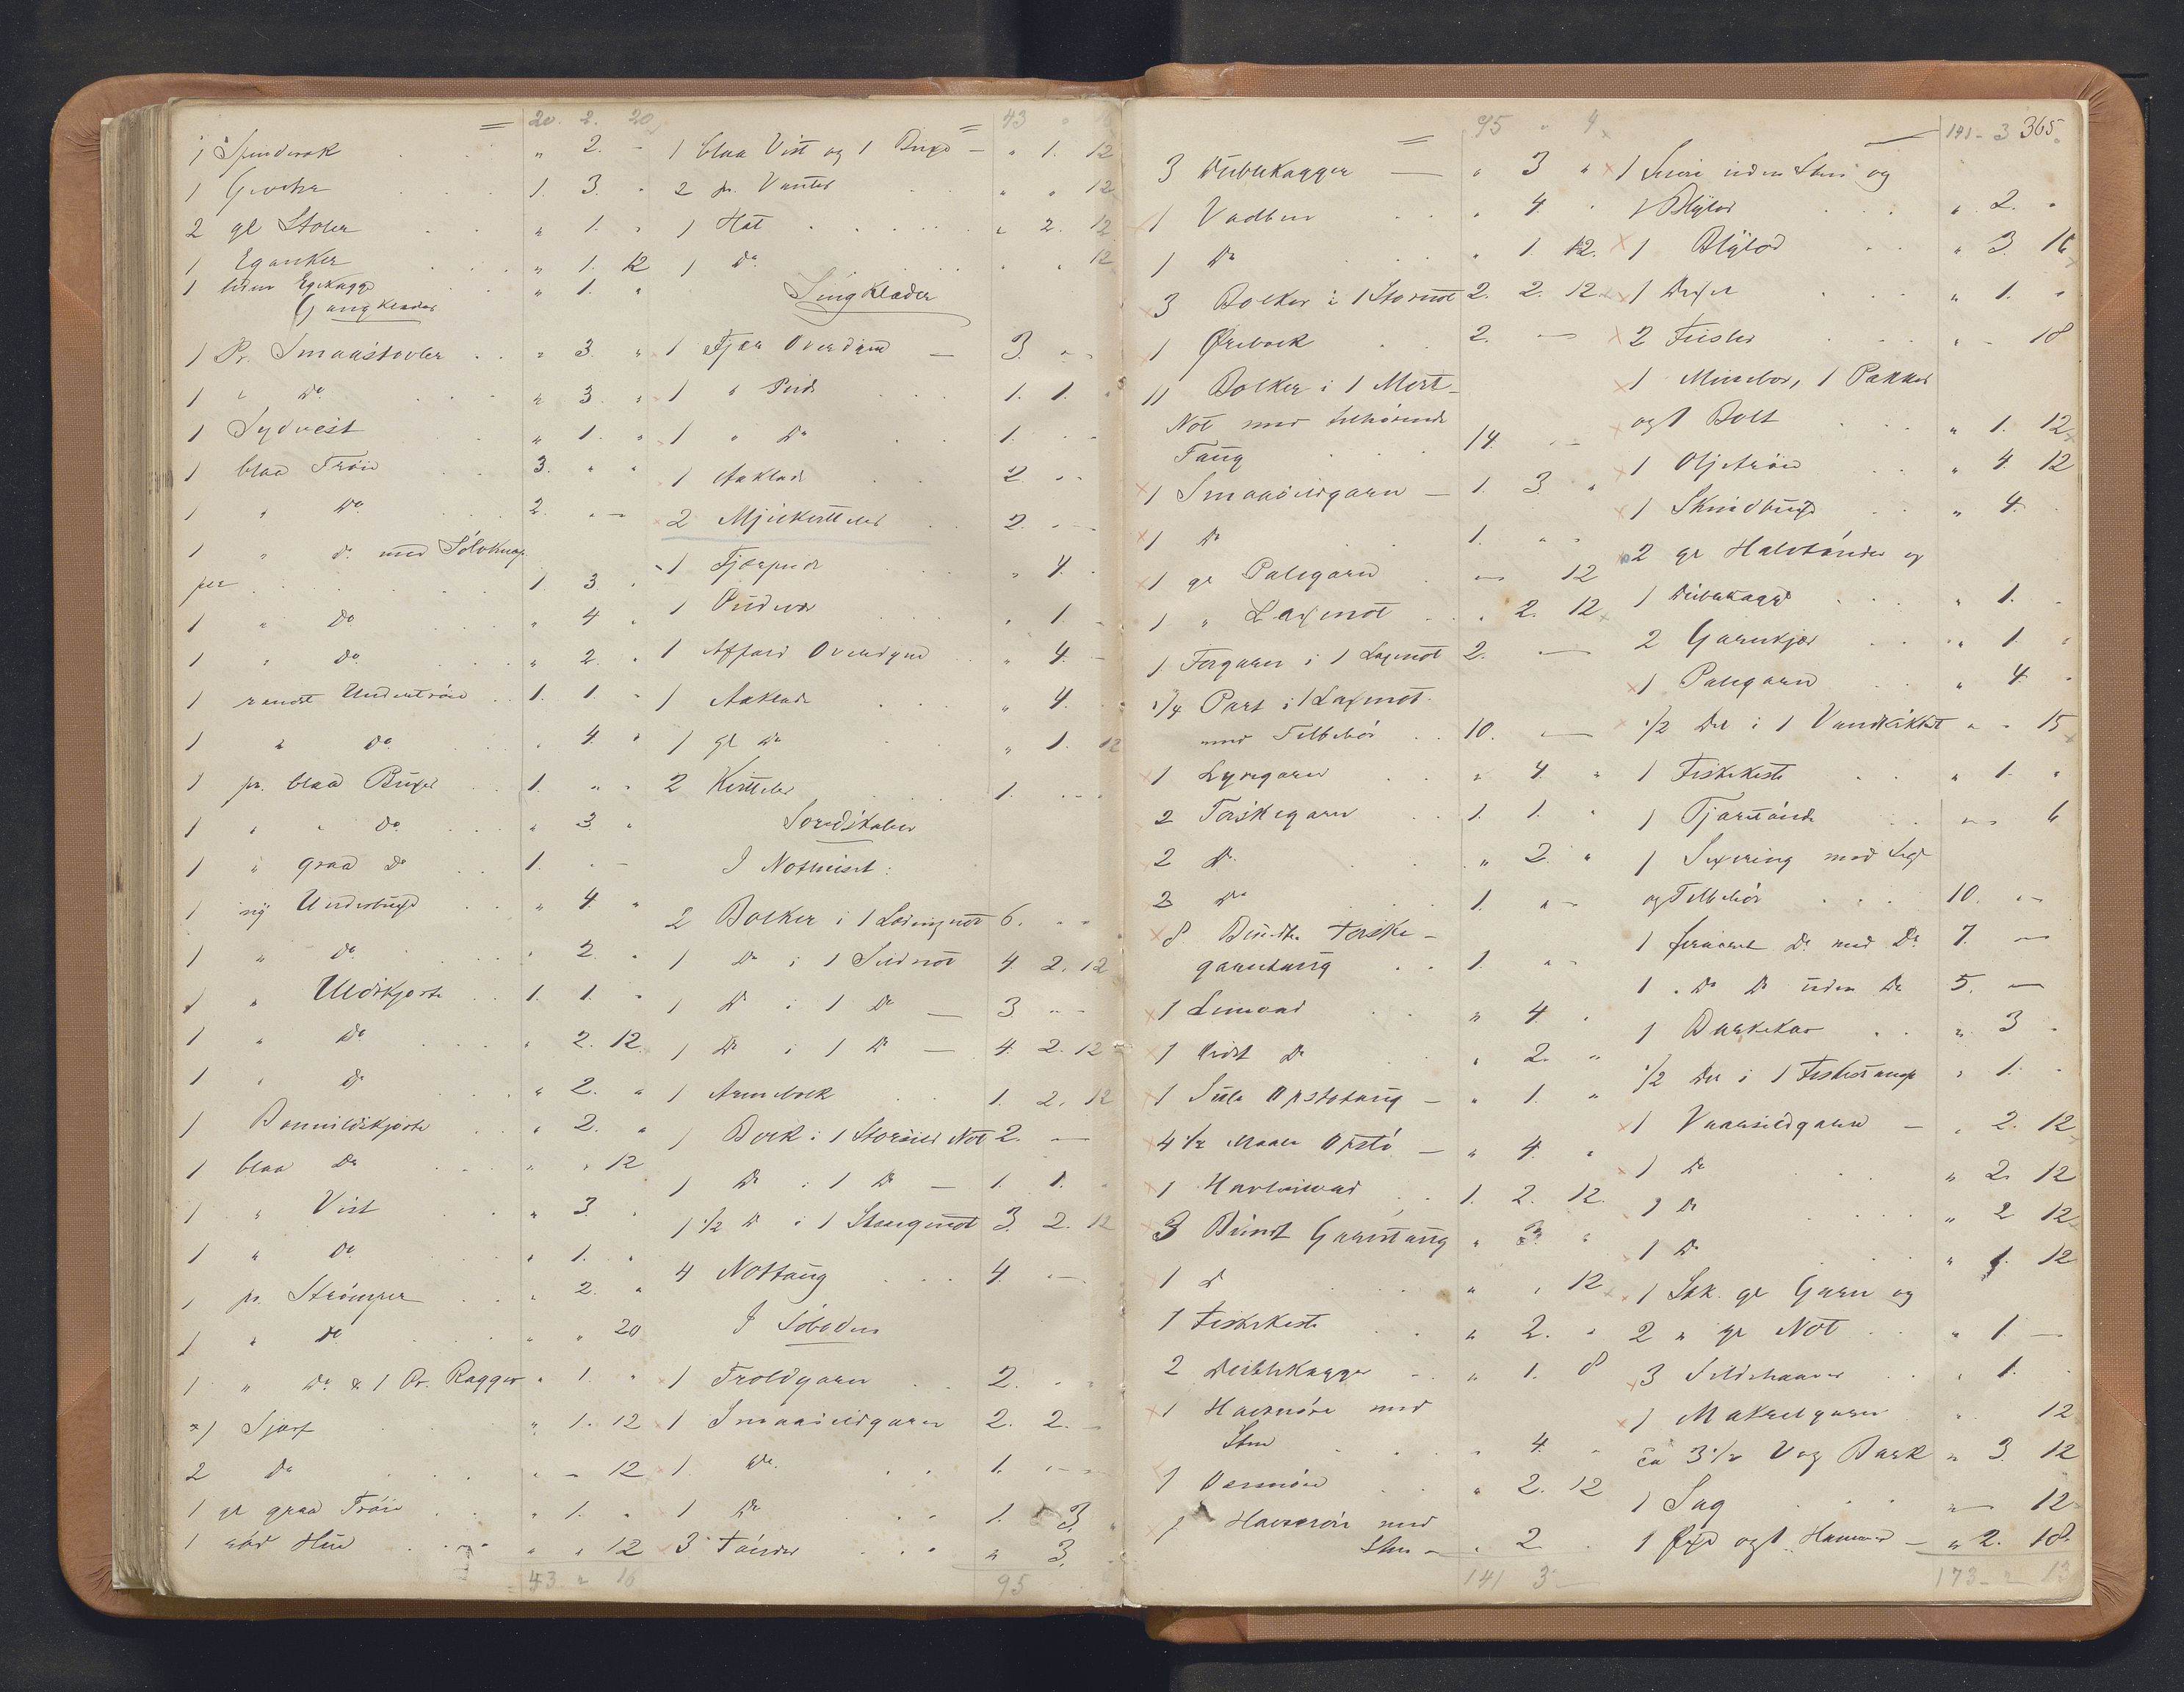 20. 2. 20
1 Spinderok . . " 2. -
1 Geveher . . . 1. 3. "
2 gl Stoler . . " 1. "
1 Eganker . . . " 1. 12
1 liden Egekagge " 1. "
Gangklæder
1 Pr. Smaastøvler . . " 3. "
1 " Do . . . " 3. "
1 Sydvest . . " 1. "
1 blaa Trøie . . 3. " "
1 " Do . . . 2. " -
1 " Do med Sølvknap-
per . . . . . 1 3 "
1 " Do . . . " 4 "
1 " Do . . . " 2. "
1 randt Undertrøie . . 1. 1. "
1 " Do . . . " 4. "
1 pr. blaa Buxer . . 1. " "
1 " " Do . . " 3. "
1 " graa Do . . 1. " -
1 ny Underbuxe . . " 4. "
1 " Do . . . " 2. "
1 " Uldskjorte . . 1. 1. "
1 " Do . . . " 2. 12.
1 " Do . . . " 2. "
1 Bomuldskjorte . " 2. "
1 blaa Do . . . " " 12
1 " Vest . . " 3. "
1 " Do . . . " 1. "
1 pr. Strømper . . " 2. "
1 " Do . . . " " 20
1 " Do & 1 Pr. Ragger " 1. "
1 Sjorf . . . " 1. 12
2 Do . . . " - 12
1 gl graa Trøie . . " 1. "
1 rød Hue . . . " " 12
43 " 16
43 " 16
1 blaa Vest og 1 Buxe - " 1. 12
2 pr. Vanter . . " " 12
1 Hat . . . . . " 2. 12
1 Do . . . . " " 12
Sengklæder
1 Fjær Overdyne — 3. " -
1 " Pude . . . 1. 1. "
1 " Do . . 1. " -
1 Aaklæde . . 2. " -
2 Mjelkitteler . . 2. " -
1 Fjærpude . . " 4. -
1 Pudevar . . . " 1. -
1 Affars Overdyne . . " 4. -
1 Aaklæde . . . " 4. -
1 gl Do . . . " 1. 12
2 Kitteler . . . 1. " -
Søredskaber
I Nothuset:
2 Bolker i 1 Lodingnot 6. " -
1 Do i 1 Seidnot 4. 2. 12
1 Do i 1 Do — 3 " -
1 Do i 1 Do — 4. 2. 12
1 Armebolk . . 1. 2. 12
1 Bolk i 1 Storsild Not 2. —
1 Do i 1 Do — 1. 1. "
1 1/2 Do i 1 Stængenot 3. 2. 12
4 Nottaug . . . 4. " -
I Søboden
1 Troldgarn . . 2. " -
1 Smaasildgarn . 2. 2. -
1 Do . . 1. " -
1 Do . . 1. 3. "
3 Tønder . . . " 3.
95
95 " 4
3 Dubbekagger — " 3 "
1 Vadben . . . " 4. "
1 Do . . . " 1. 12.
3 Bolker i 1 Stornot 2. 2. 12.
1 Ørebolk . . 2. —
11 Bolker i 1 Mort-
Not med tilhørende
Taug . . . 14. " -
1 Smaasildgarn — 1. 3. "
1 Do . . 1. " "
1 gl Palegarn . " - 12
1 " Laxenot . . " 2. 12
1 Forgarn i 1 Laxenot 2. —
1/4 Part i 1 Laxenot
med Tilbehør . . 10. —
1 Lyregarn . . " 4. "
2 Torskegarn . . 1. 1. "
2 Do . . . " 2. "
3 Do . . 1. " -
8 Bundter Torske-
garntaug . . 1. " -
1 Linevad . . " 4. "
1 slidt Do . . " 2. "
1 Sule Opstotaug — " 1. "
4 1/2 Maale Opstø — " 4. "
1 Havlinevad . . 1. 2. 12.
3 Bundt Garntaug " 3. "
1 D . . . " " 12
1 Fiskekeste . . " 2. "
2 Dubbekagger . . " 1. 8
1 Havsnøre med
Sten . . . " 4. "
1 Dersnøre . . " 2. 12
1 Havsnøre med
Sten - " 2 "
141 3 —
141 - 3 365.
1 Snøre uden Sten og
1 Blylod . . . " 2. "
1 Blylod . . " 3. 16
1 Dexel . . . " 1. "
2 Feisler . . . " - 18
1 Minebor, 1 Pakker
og 1 Bolt . . . " 1. 12
1 Oljetrøie . . " 4. 12
1 Skindbuxe . . " 4.
2 gl Halvtønder og
1 Dubbekagge . . . " 1. -
2 Garnkjær . . " 1. "
1 Palegarn . . " 4. "
1/2 Del i 1 Vandkikkert " - 15
1 Fiskekeste . . " 1. "
1 Tjærtønde . . " - 6
1 Sexæring med Segl
og Tilbehør . . . 10. " -
1 firæret Do med Do 7. —
1 " Do Do uden Do 5. —
1 Barkekar . . " 3 -
1/2 Del i 1 Fiskestampe " 1. -
1 Vaarsildgarn — " 2. 12
1 Do . . . " 2. 12
1 Do . . . " 2 12
1 Do . . " 1. 12
1 Sæk gl Garn og
2 " gl Not . . " 1. —
3 Sildehaaver . . " 1. -
1 Makrelgarn . " 12
ca 3 1/2 Vog Bark " 3 12
1 Sag . . . " — 12
1 Øxe og 1 Hammer — " 2. 18.
173 - " 13